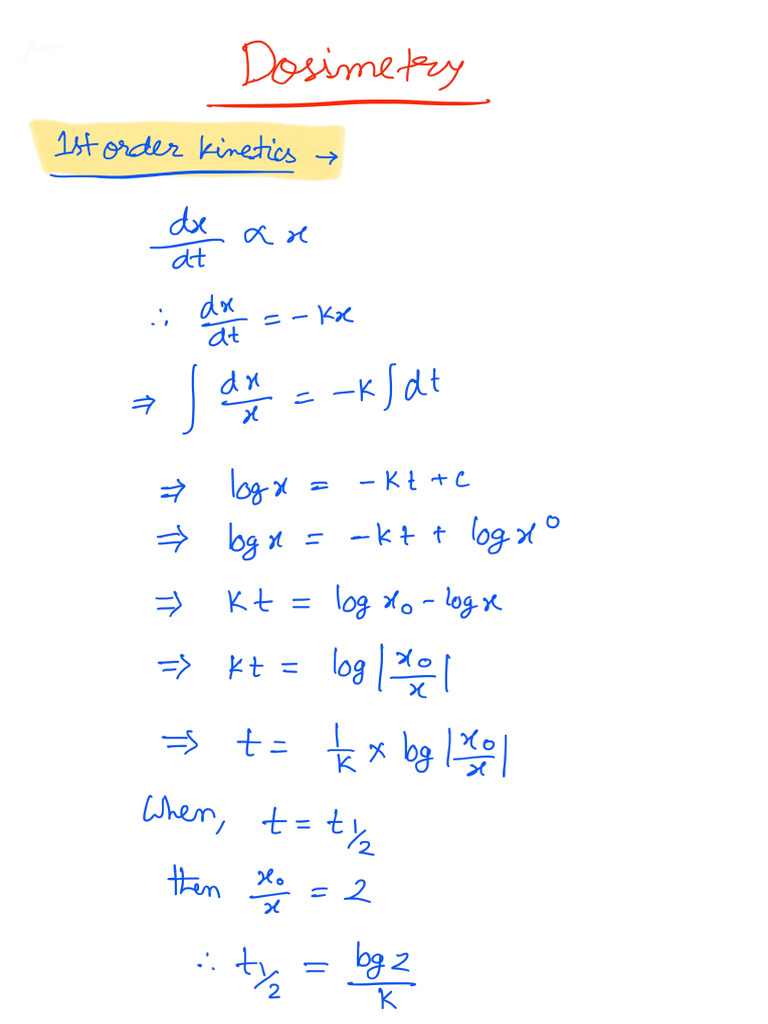 Dosimetry
1st order kinetics →
dx/dt ∝ x
∴ dx/dt = -kx
⇒ ∫ dx/x = -k ∫ dt
⇒ log x = -kt + c
⇒ log x = -kt + log x⁰
⇒ kt = log x₀ - log x
⇒ kt = log |x₀/x|
⇒ t = 1/k × log |x₀/x|
When, t = t1/2
then x₀/x = 2
∴ t1/2 = log 2/k